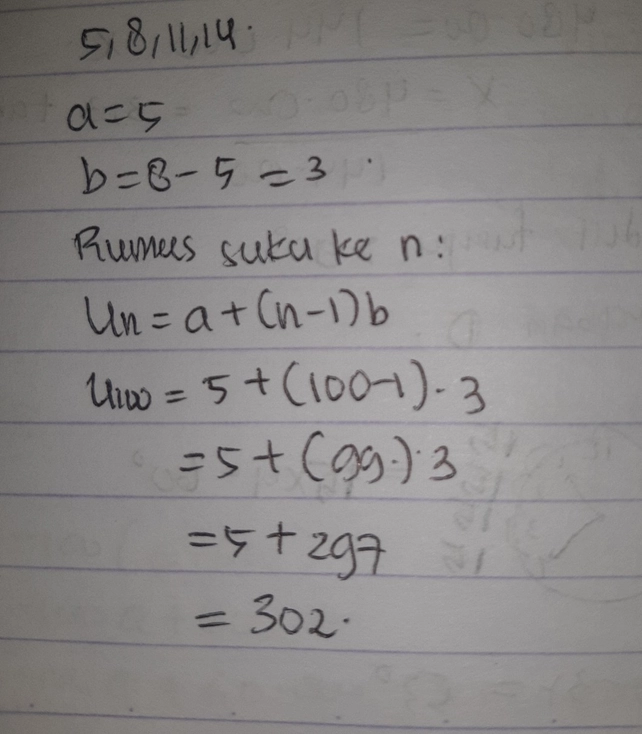 5, 8, 11, 14.
a = 5
b = 8 - 5 = 3
Rumus suku ke n:
Un = a + (n-1)b
U100 = 5 + (100-1) . 3
= 5 + (99.) . 3
= 5 + 297
= 302.